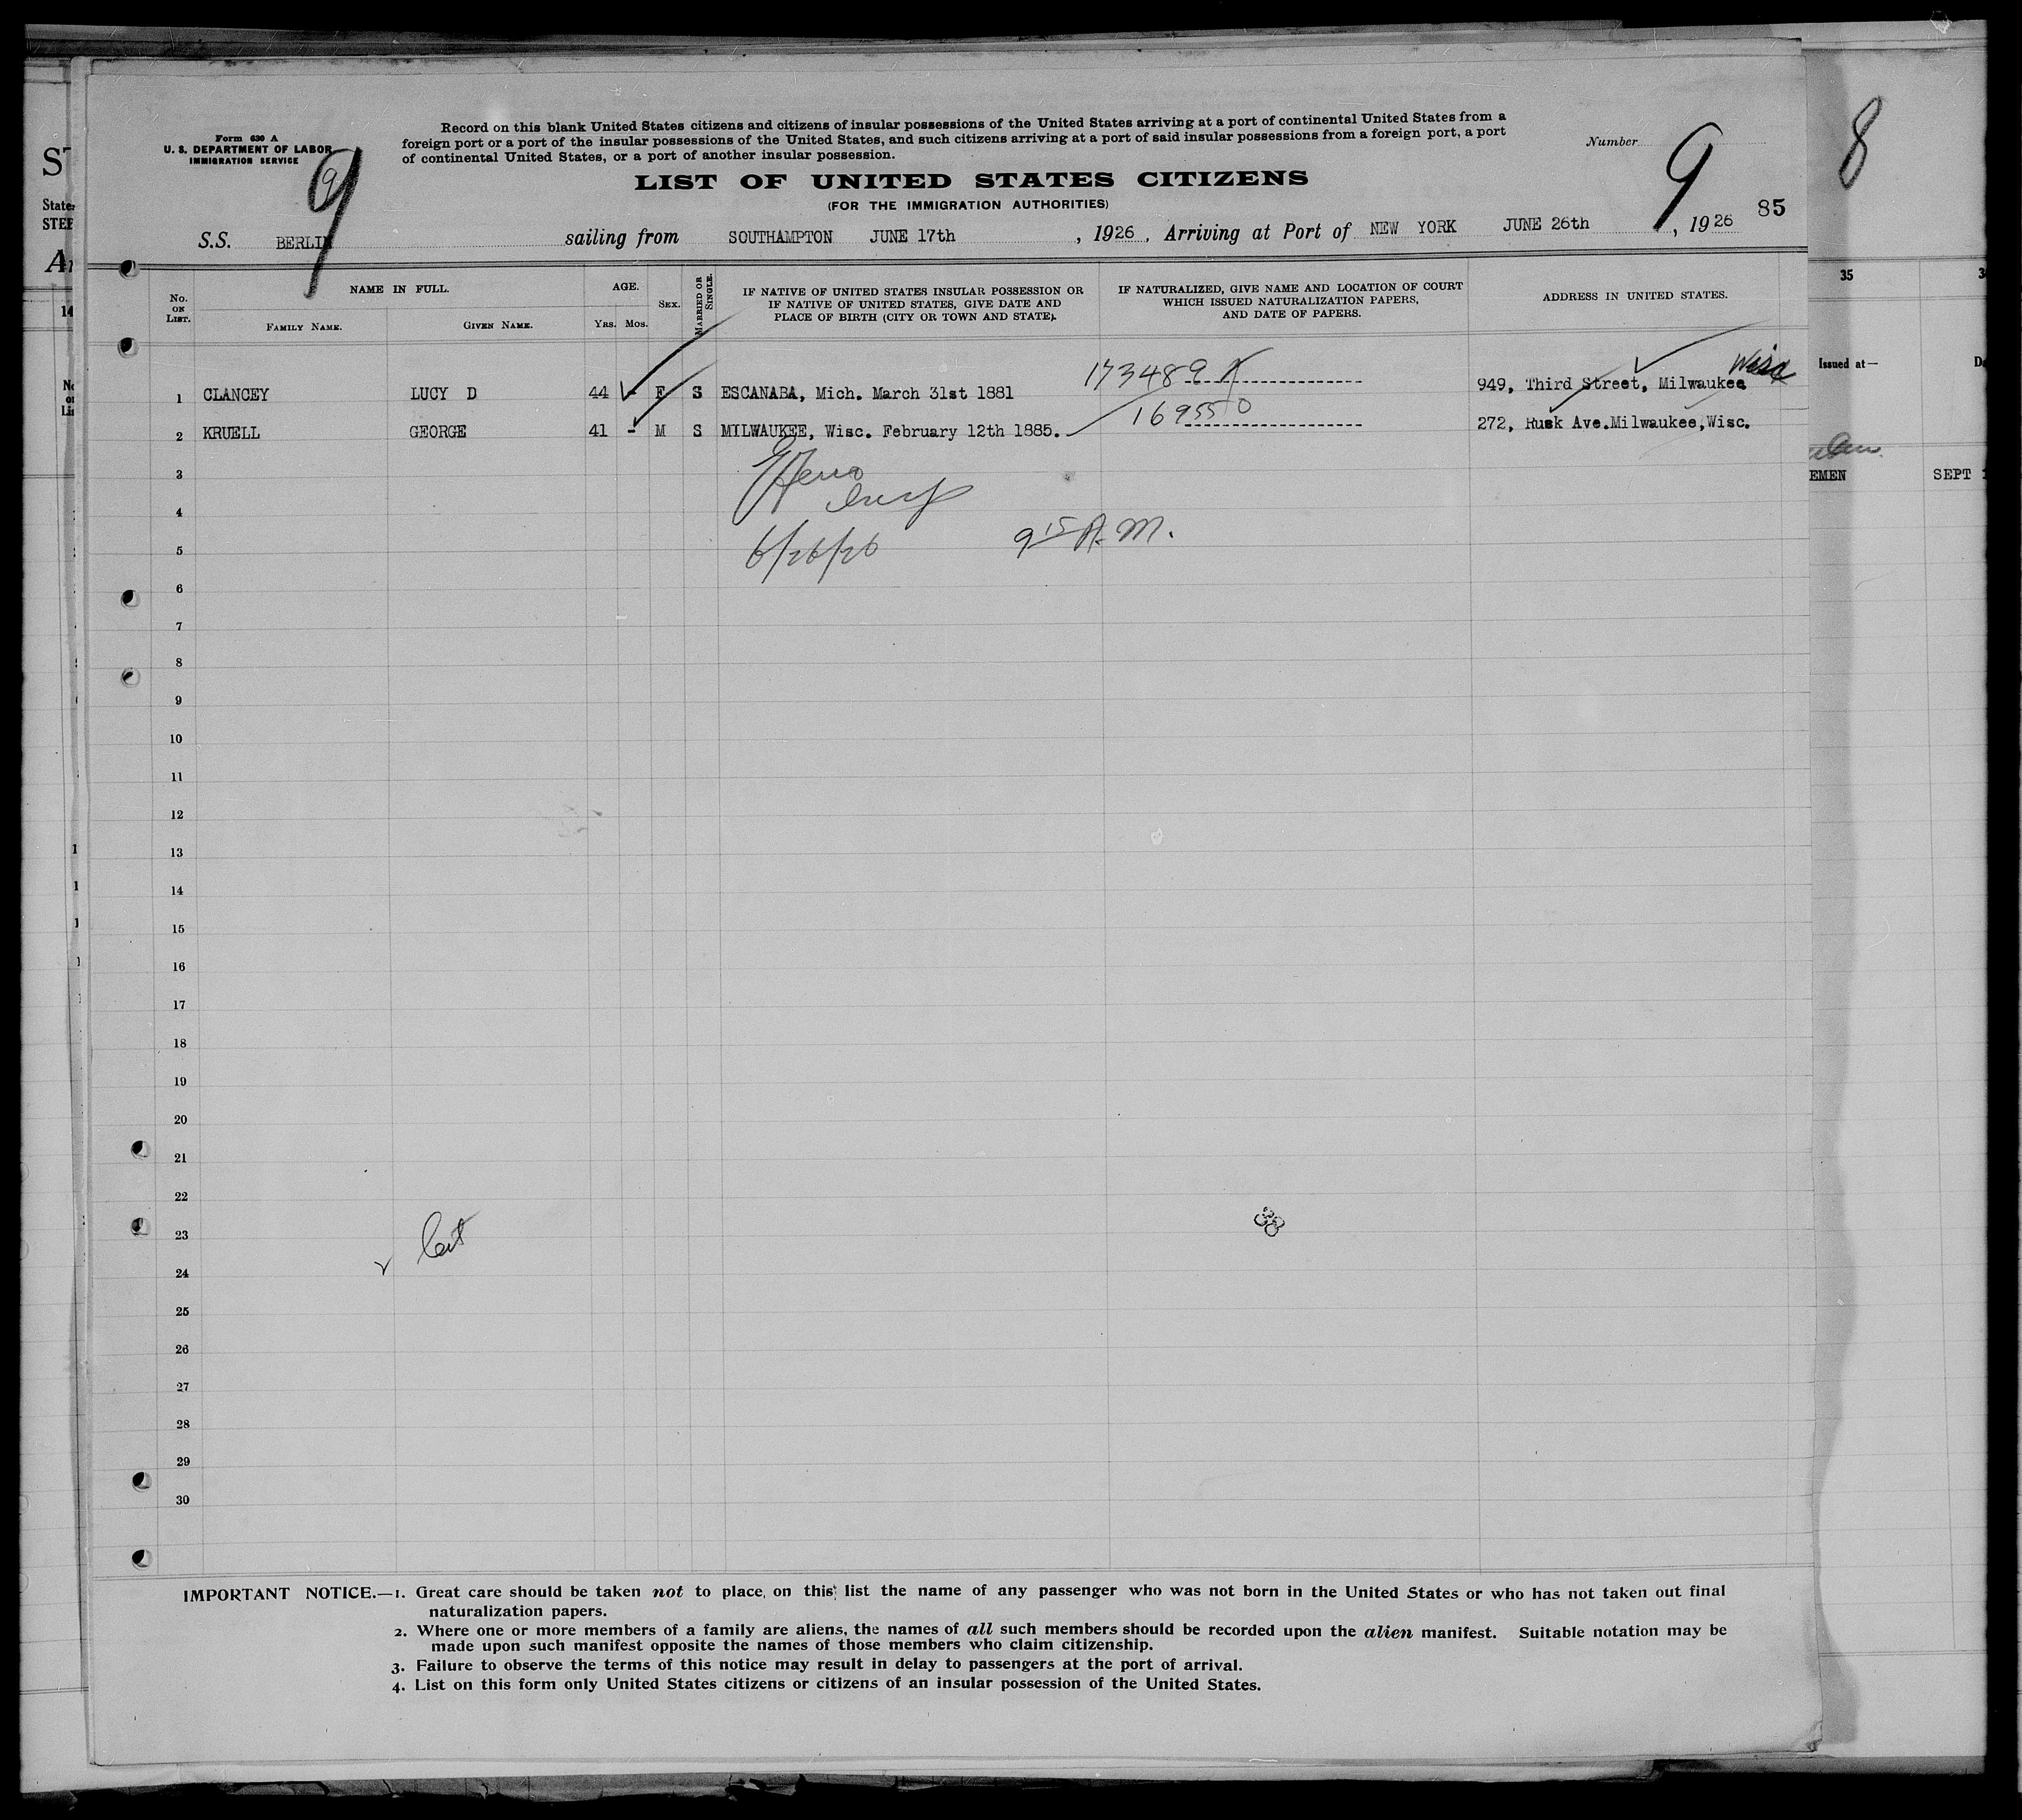 Form 630 A
U. S. DEPARTMENT OF LABOR
IMMIGRATION SERVICE
9
9
Record on this blank United States citizens and citizens of insular possessions of the United States arriving at a port of continental United States from a
foreign port or a port of the insular possessions of the United States, and such citizens arriving at a port of said insular possessions from a foreign port, a port
of continental United States, or a port of another insular possession.
Number
9
85
8
LIST OF UNITED STATES CITIZENS
(FOR THE IMMIGRATION AUTHORITIES)
S.S. BERLIN sailing from SOUTHAMPTON JUNE 17th , 1926 , Arriving at Port of NEW YORK JUNE 26th , 1926
No. ON LIST.
NAME IN FULL.
FAMILY NAME. GIVEN NAME.
AGE.
Yrs. Mos.
SEX.
MARRIED OR SINGLE.
IF NATIVE OF UNITED STATES INSULAR POSSESSION OR
IF NATIVE OF UNITED STATES, GIVE DATE AND
PLACE OF BIRTH (CITY OR TOWN AND STATE).
IF NATURALIZED, GIVE NAME AND LOCATION OF COURT
WHICH ISSUED NATURALIZATION PAPERS,
AND DATE OF PAPERS.
ADDRESS IN UNITED STATES.
1 CLANCEY LUCY D 44 - F S ESCANABA, Mich. March 31st 1881 173489 949, Third Street, Milwaukee Wisc
2 KRUELL GEORGE 41 - M S MILWAUKEE, Wisc. February 12th 1885. 169550 272, Rusk Ave.Milwaukee,Wisc.
3
4
5
6/26/26 9 15 A.M.
6
7
8
9
10
11
12
13
14
15
16
17
18
19
20
21
22
23
24
25
26
27
28
29
30
IMPORTANT NOTICE.—1. Great care should be taken not to place on this list the name of any passenger who was not born in the United States or who has not taken out final
naturalization papers.
2. Where one or more members of a family are aliens, the names of all such members should be recorded upon the alien manifest. Suitable notation may be
made upon such manifest opposite the names of those members who claim citizenship.
3. Failure to observe the terms of this notice may result in delay to passengers at the port of arrival.
4. List on this form only United States citizens or citizens of an insular possession of the United States.
35
Issued at—
EMEN SEPT